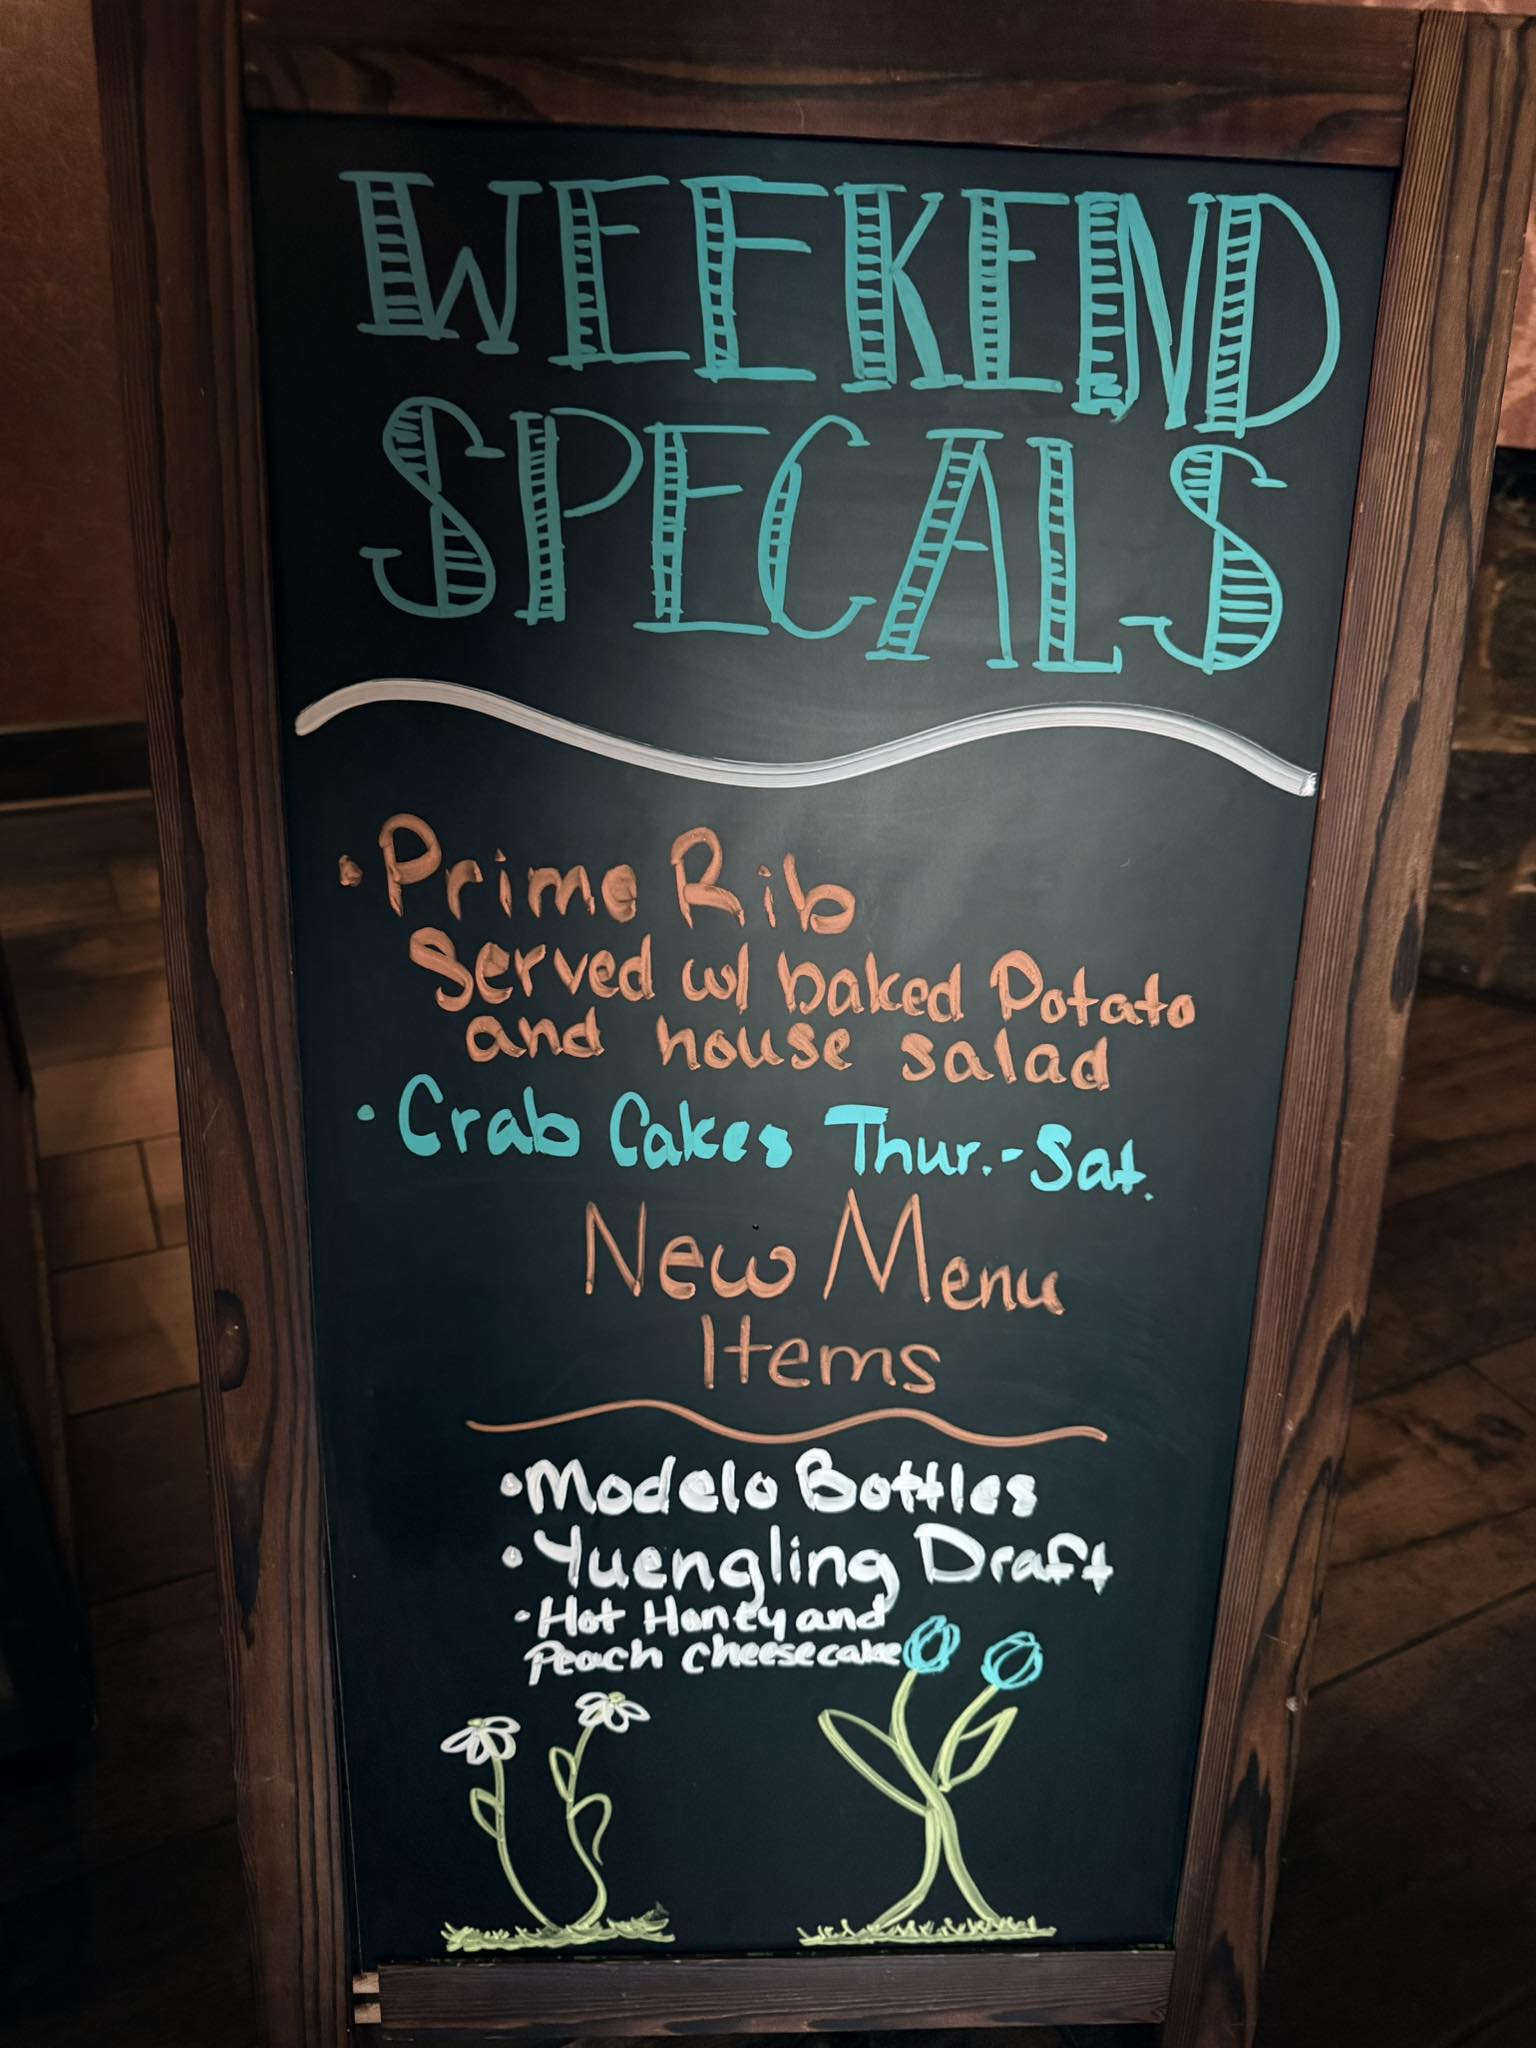 WEEKEND
SPECALS
• Prime Rib
Served w/ baked Potato
and house salad
• Crab Cakes Thur.-Sat.
New Menu
Items
• Modelo Bottles
• Yuengling Draft
• Hot Honey and
Peach cheesecake